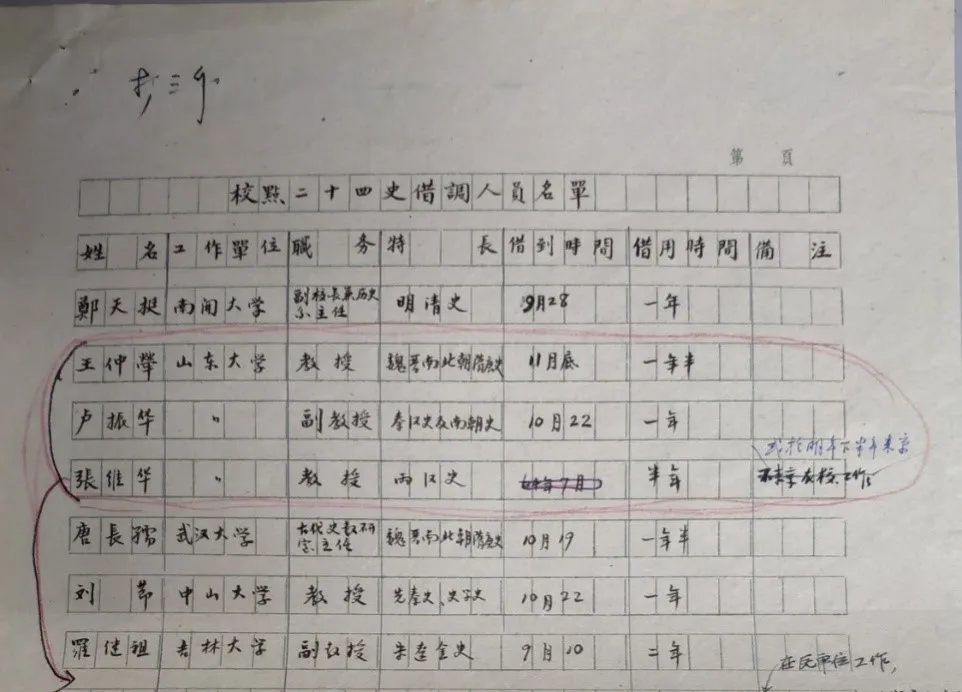 抄三份
第 頁
校點二十四史借調人員名單
姓名 工作單位 職务 特長 借到時間 借用時間 備注
鄭天挺 南開大学 副校長兼历史系主任 明清史 9月28 一年
王仲犖 山东大学 教授 魏晋南北朝隋唐史 11月底 一年半
卢振华 〃 副教授 秦汉史及南朝史 10月22 一年
或於明年下半年来京
張维华 〃 教授 两汉史 半年
唐長孺 武汉大学 古代史教研室主任 魏晋南北朝隋唐史 10月19 一年半
刘節 中山大学 教授 先秦史、史学史 10月22 一年
羅继祖 吉林大学 副教授 宋遼金史 9月10 二年
工作,